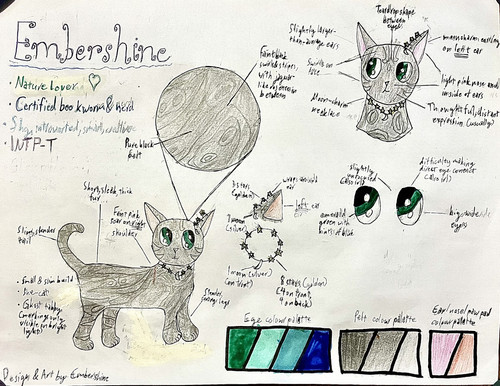 Embershine
Nature Lover
• Certified bookworm & nerd
• Shy, introverted, smart, creative
INTP-T
Pure black pelt
Faint black
swirls & stripes,
with jaguar
like rosettes in
between
Slightly larger-
than-average ears
Teardrop shape
between
eyes
moon charm earring
on left ear
Swirls on
face
light pink nose and
inside of ears
Moon-charm
necklace
Thoughtful, distant
expression (usually)
Short, sleek, thick
fur
Faint pink
scar on right
shoulder
Slim, slender
tail
wraps around
ear
left ear
1 moon
(silver)
1 moon (silver)
(on front)
8 stars (golden)
(4 on front,
4 on back)
Slender,
long legs
slightly
difficulty making
direct eye contact
emerald
green with
hints of blue
big, wide
eyes
• Small & slim build
• Ghost tabby
(markings only
visible in bright
light)
Eye colour palette
Pelt colour palette
Ear/nose/paw pad
colour palette
Design & Art by: Embershine